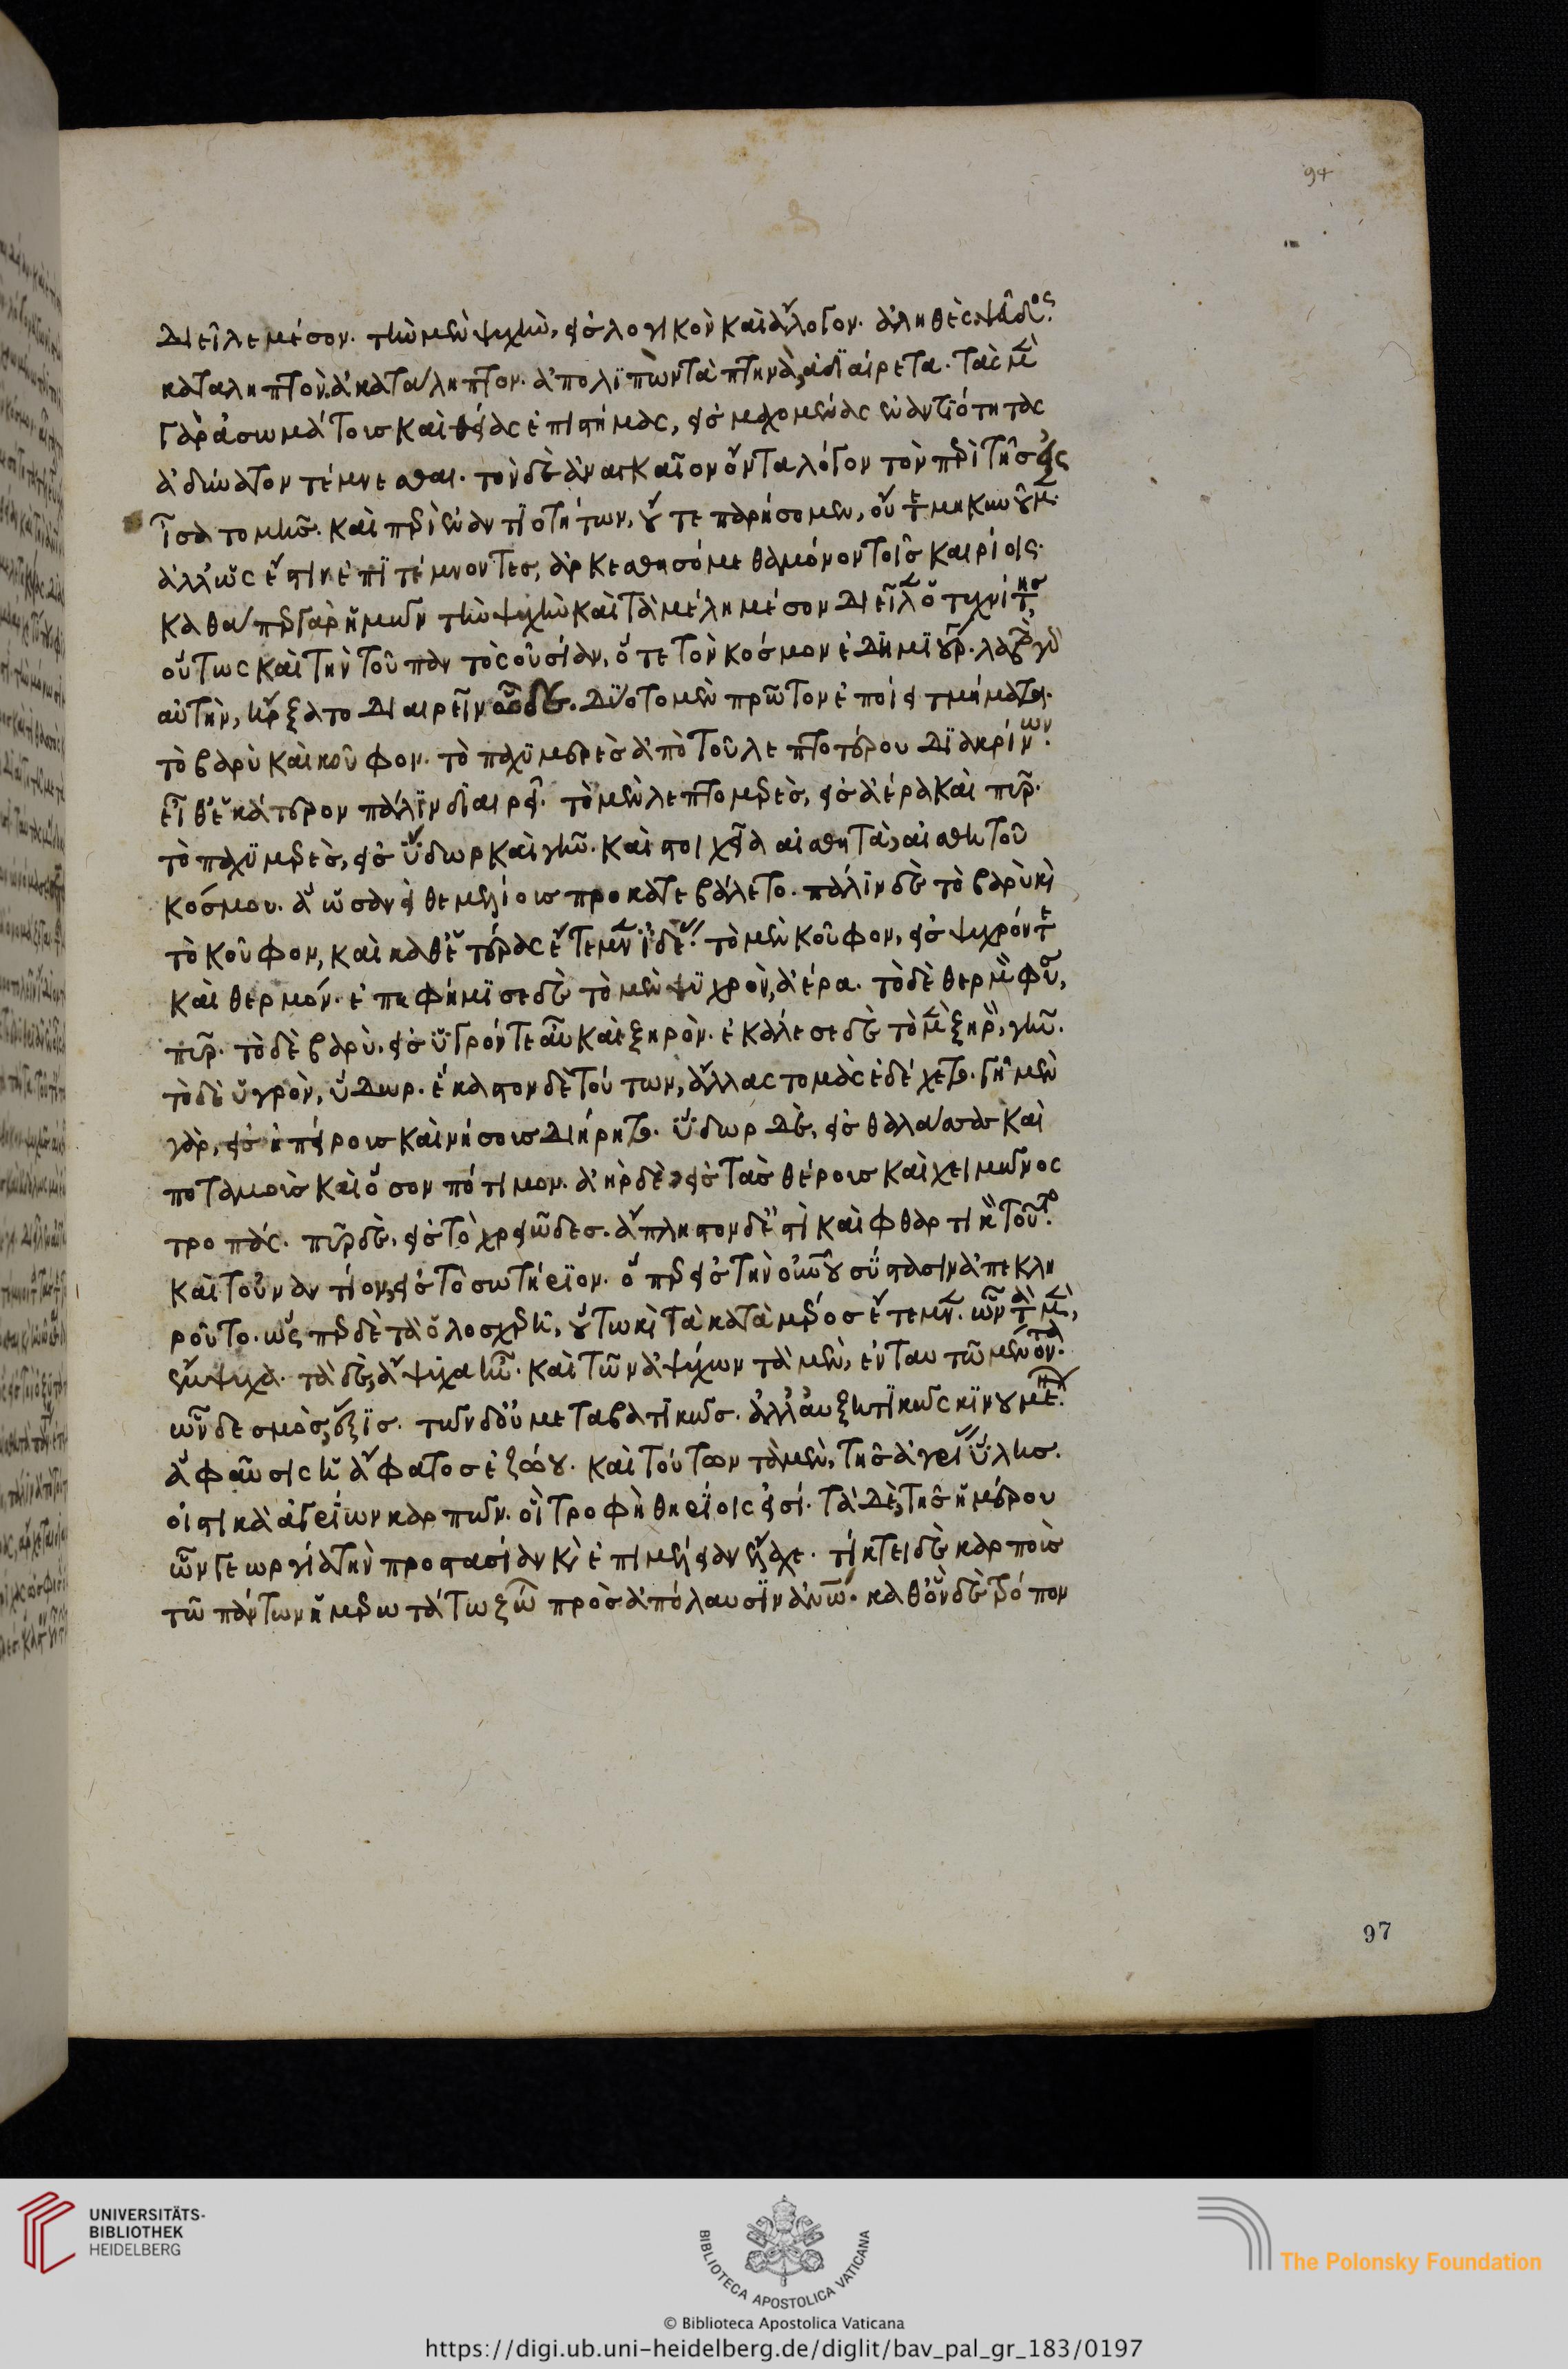 94
διεῖλε μέσον. τὴν μὲν ψυχὴν, εἰς λογικὸν καὶ ἄλογον. ἀληθὲς, ψεῦδος.
καταληπτὸν, ἀκατάληπτον. ἀπολϊπὼν τὰ πτηνὰ, ἀδϊαίρετα. τὰς μὲν
γὰρ ἀσωμάτοις καὶ θείας ἐπιστήμας, εἰς μαχομένας ἐναντϊότητας
ἀδύνατον τέμνεσθαι. τὸν δὲ ἀναγκαῖον ὄντα λόγον τὸν περὶ τῆς εἰς
ἴσα τομῆς. καὶ περὶ ἐναντϊοτήτων, οὔτε παρήσομεν, οὔτε μηκυνοῦμεν.
ἀλλ' ὡς ἔστιν ἐπϊτέμνοντες, ἀρκεσθησόμεθα μόνον τοῖς καιρίοις.
καθάπερ γὰρ ἡμῶν τὴν ψυχὴν καὶ τὰ μέλη μέσον διεῖλεν ὁ τεχνίτης,
οὕτως καὶ τὴν τοῦ παντὸς οὐσίαν, ὅτε τὸν κόσμον ἐδημϊούργει. λαβὼν γὰρ
αὐτὴν, ἤρξατο διαιρεῖν ὧδε. δύο τὸ μὲν πρῶτον ἐποίει τμήματα.
τὸ βαρὺ καὶ κοῦφον. τὸ παχϋμερὲς ἀπὸ τοῦ λεπτοτέρου δϊακρίνων.
εἶθ' ἑκάτερον πάλϊν δϊαιρεῖ. τὸ μὲν λεπτομερὲς, εἰς ἀέρα καὶ πῦρ.
τὸ παχϋμερὲς, εἰς ὕδωρ καὶ γῆν. καὶ στοιχεῖα αἰσθητὰ, αἰσθητοῦ
κόσμου. ἃ ὡσανεὶ θεμελίοις προκατεβάλετο. πάλϊν δὲ τὸ βαρὺ καὶ
τὸ κοῦφον, καὶ καθ' ἑτέρας ἔτεμνεν ἰδέας. τὸ μὲν κοῦφον, εἰς ψυχρόν τε
καὶ θερμόν. ἐπεφήμϊσε δὲ τὸ μὲν ψϋχρὸν, ἀέρα. τὸ δὲ θερμὸν φύσει,
πῦρ. τὸ δὲ βαρὺ, εἰς ὑγρόν τε αὖ καὶ ξηρὸν. ἐκάλεσε δὲ τὸ μὲν ξηρὸν, γῆν.
τὸ δὲ ὑγρὸν, ὕδωρ. ἕκαστον δὲ τούτων, ἄλλας τομὰς ἐδέχετο. γῆ μὲν
γὰρ, εἰς ἠπείροις καὶ νήσοις διήρητο. ὕδωρ δὲ, εἰς θάλασσαν καὶ
ποταμοὺς καὶ ὅσον πότιμον. ἀὴρ δὲ, εἰς τὰς θέροις καὶ χειμῶνος
τροπάς. πῦρ δὲ, εἰς τὸ χρειῶδες. ἄπληστον δέ ἐστι καὶ φθαρτικὸν τοῦτο.
καὶ τοὐναντίον, εἰς τὸ σωτήρϊον. ὅπερ εἰς τὴν οὐρανοῦ σύστασιν ἀπεκλη
ροῦτο. ὥσπερ δὲ τὰ ὁλοσχερῆ, οὕτω καὶ τὰ κατὰ μέρος ἔτεμνεν. ὧν τὰ μὲν,
ἔμψυχα. τὰ δὲ, ἄψυχα ἦν. καὶ τῶν ἀψύχων τὰ μὲν, ἐν ταυτῶ μένοντα.
ὧν δεσμὸς, ἕξϊς. τῶν δ' οὐ μεταβατϊκῶς. ἀλλ' αὐξητϊκῶς κϊνούμενα.
ἃ φύσις ἡ ἀφάνταστος ἐζώου. καὶ τούτων τὰ μὲν, τῆς ἀγρίας ὕλης.
οἰστικὰ ἀγρίων καρπῶν. οἳ τροφὴ θηρίοις εἰσί. τὰ δὲ, τῆς ἡμέρου
ὧν γεωργία τὴν προστασίαν καὶ ἐπιμέλειαν ἔλαχε. τίκτει δὲ καρποὺς
τῶ πάντων ἡμερωτάτω ζώω πρὸς ἀπόλαυσϊν ἀνθρώπω. καθ' ὃν δὲ τρόπον
97
UNIVERSITÄTS-
BIBLIOTHEK
HEIDELBERG
BIBLIOTECA APOSTOLICA VATICANA
The Polonsky Foundation
© Biblioteca Apostolica Vaticana
https://digi.ub.uni-heidelberg.de/diglit/bav_pal_gr_183/0197